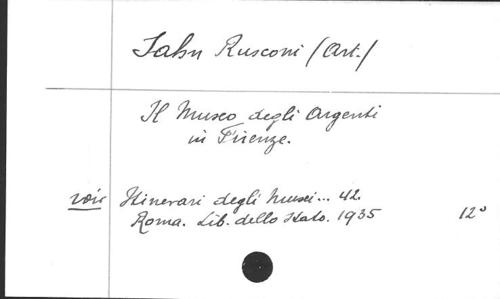 Jahn Rusconi (Art.)
Il Museo degli Argenti
in Firenze.
voir Itinerari degli Musei... 42.
Roma. Lib. dello Stato. 1935 12°